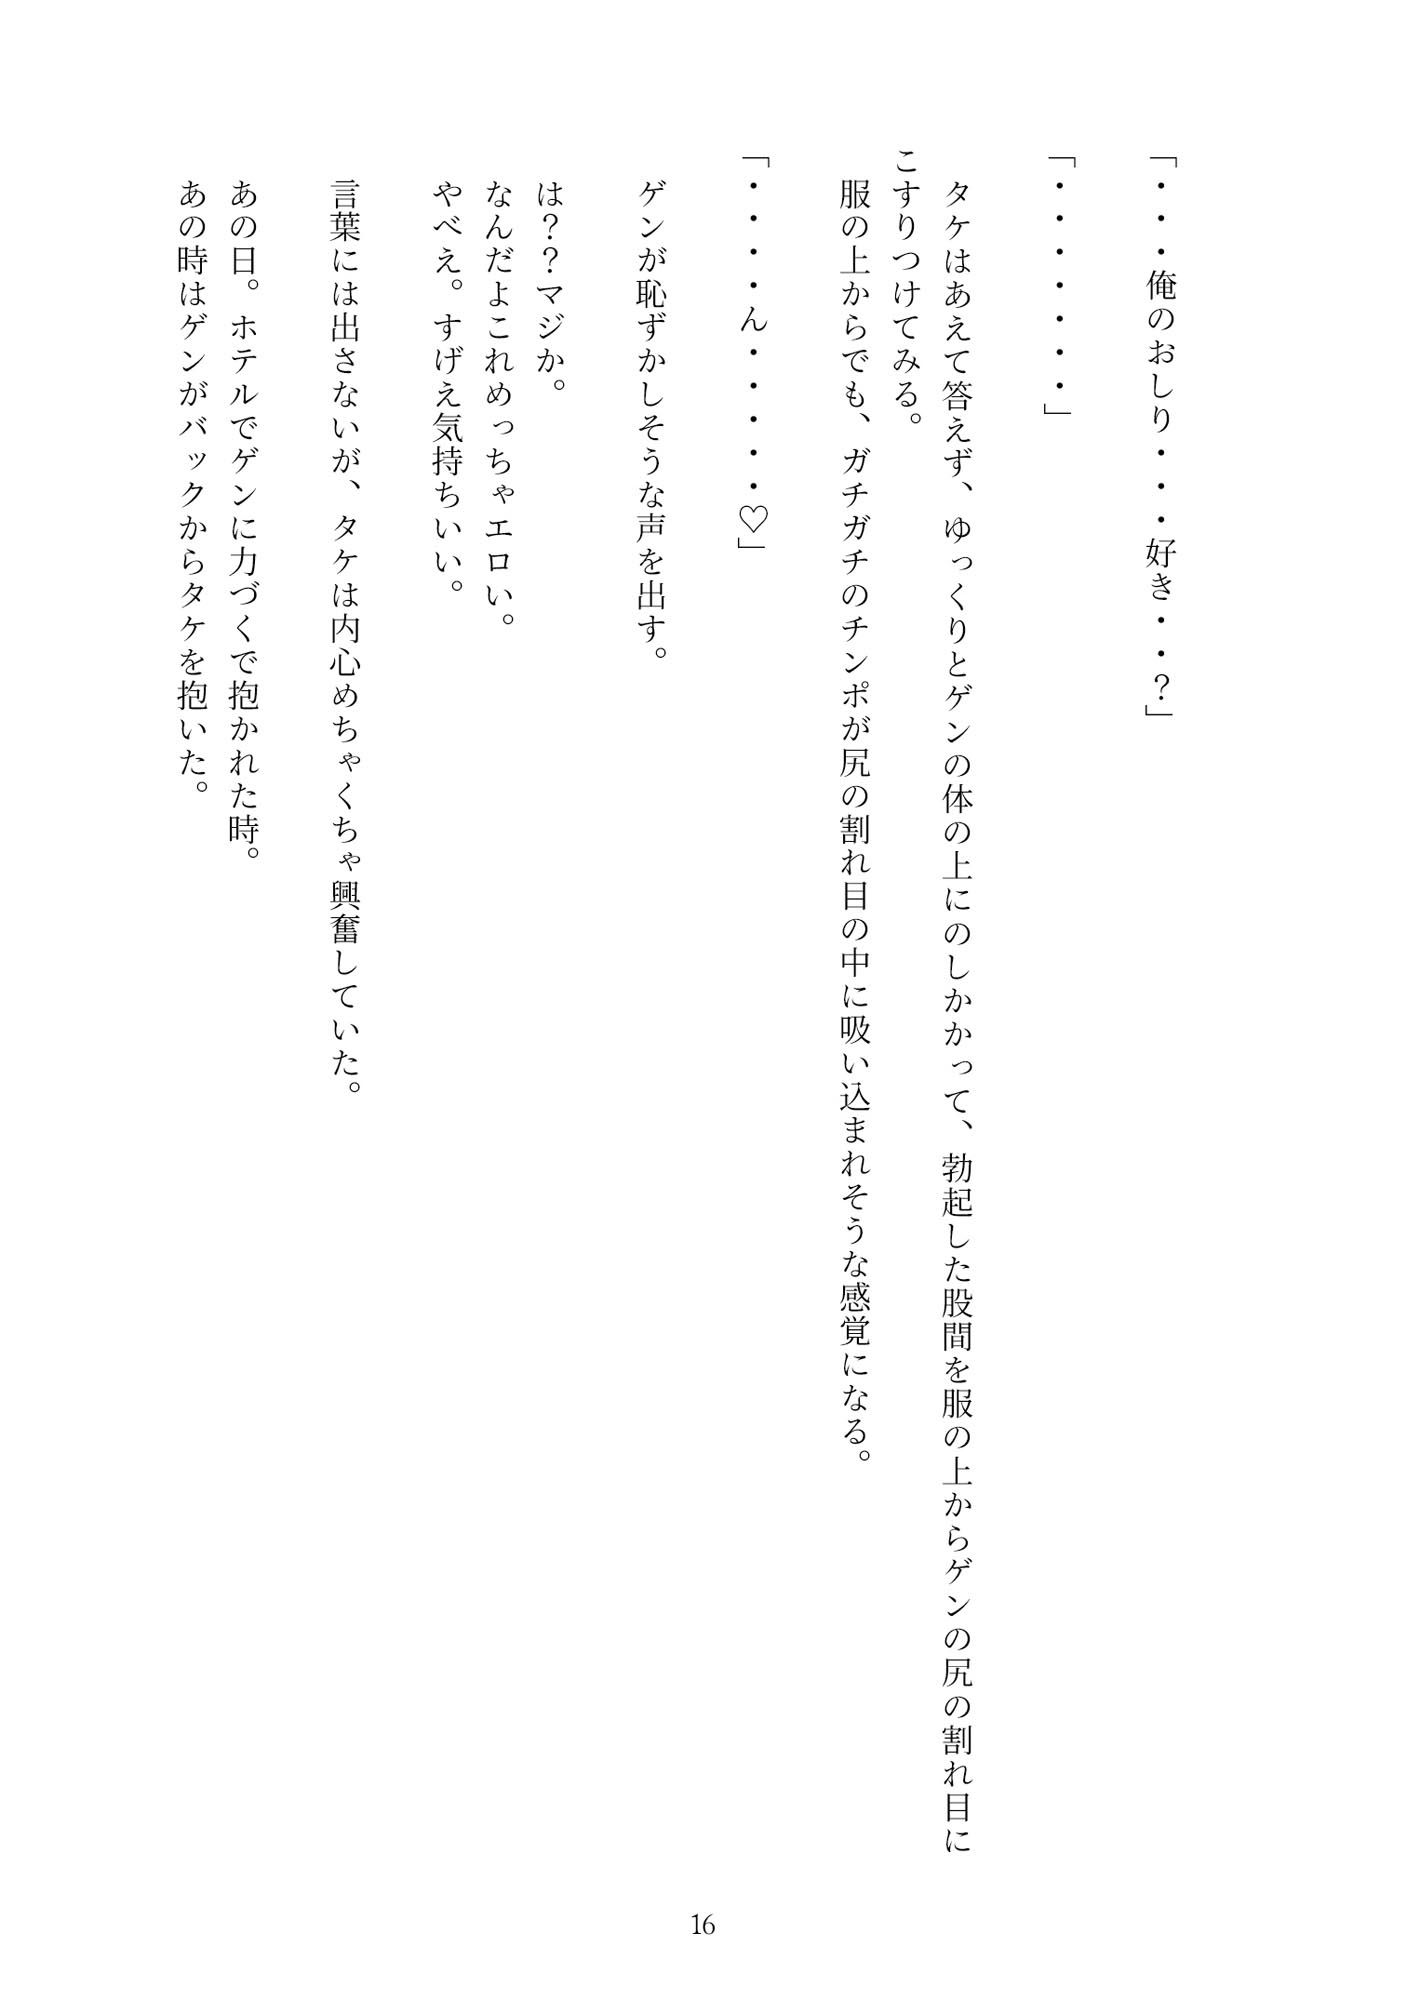 「・・・俺のおしり・・・好き・・？」
「・・・・・・・」
タケはあえて答えず、ゆっくりとゲンの体の上にのしかかって、勃起した股間を服の上からゲンの尻の割れ目に
こすりつけてみる。
服の上からでも、ガチガチのチンポが尻の割れ目の中に吸い込まれそうな感覚になる。
「・・・・ん・・・・・♡」
ゲンが恥ずかしそうな声を出す。
は？？マジか。
なんだよこれめっちゃエロい。
やべえ。すげえ気持ちいい。
言葉には出さないが、タケは内心めちゃくちゃ興奮していた。
あの日。ホテルでゲンに力づくで抱かれた時。
あの時はゲンがバックからタケを抱いた。
16